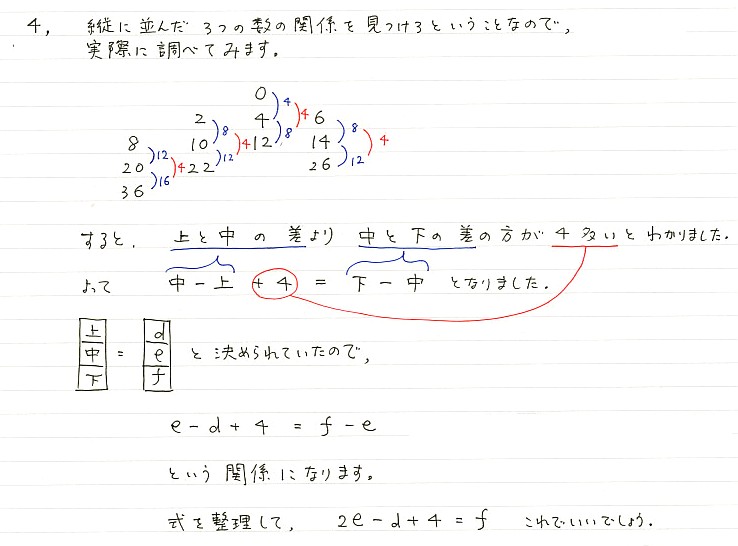 4, 縦に並んだ3つの数の関係を見つけろということなので,
実際に調べてみます。
0
4
2 4 4 6
8 8 8
8 10 4 12 14 4
12 12 12
20 4 22 26
16
36
すると、上と中の差より 中と下の差の方が4多いとわかりました.
よって 中-上 +4 = 下-中 となりました.
上 d
中 = e と決められていたので,
下 f
e-d+4 = f-e
という関係になります。
式を整理して, 2e-d+4=f これでいいでしょう.